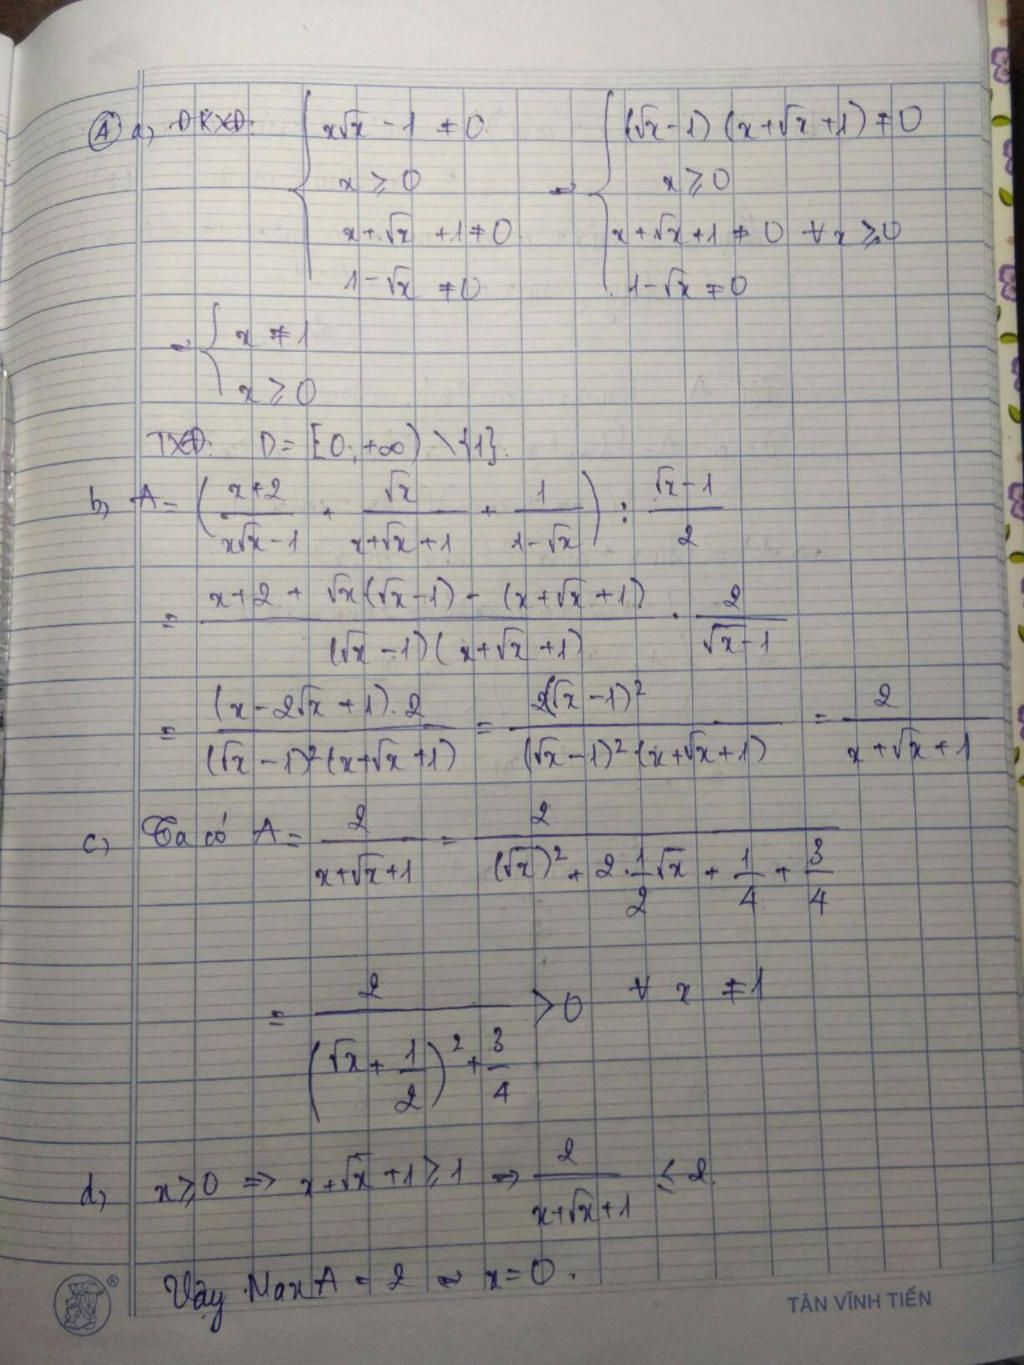 (A) a, ĐKXĐ: { x√x - 1 ≠ 0 ⇔ { (√x - 1) (x + √x + 1) ≠ 0
x ≥ 0 x ≥ 0
x + √x + 1 ≠ 0 x + √x + 1 ≠ 0 ∀ x ≥ 0
1 - √x ≠ 0 1 - √x ≠ 0
⇔ { x ≠ 1
x ≥ 0
TXĐ: D = [0; +∞) \ {1}.
b, A = ( (x+2)/(x√x - 1) + √x/(x + √x + 1) + 1/(1 - √x) ) : (√x - 1)/2
= (x + 2 + √x(√x - 1) - (x + √x + 1))/((√x - 1)(x + √x + 1)) · 2/(√x - 1)
= ((x - 2√x + 1).2)/((√x - 1)²(x + √x + 1)) = 2(√x - 1)²/((√x - 1)²(x + √x + 1)) = 2/(x + √x + 1)
c, Ta có A = 2/(x + √x + 1) = 2/((√x)² + 2.1/2 √x + 1/4 + 3/4)
= 2/((√x + 1/2)² + 3/4) > 0 ∀ x ≠ 1
d, x ≥ 0 => x + √x + 1 ≥ 1 => 2/(x + √x + 1) ≤ 2.
Vậy Max A = 2 ⇔ x = 0.
®
TÂN VĨNH TIẾN